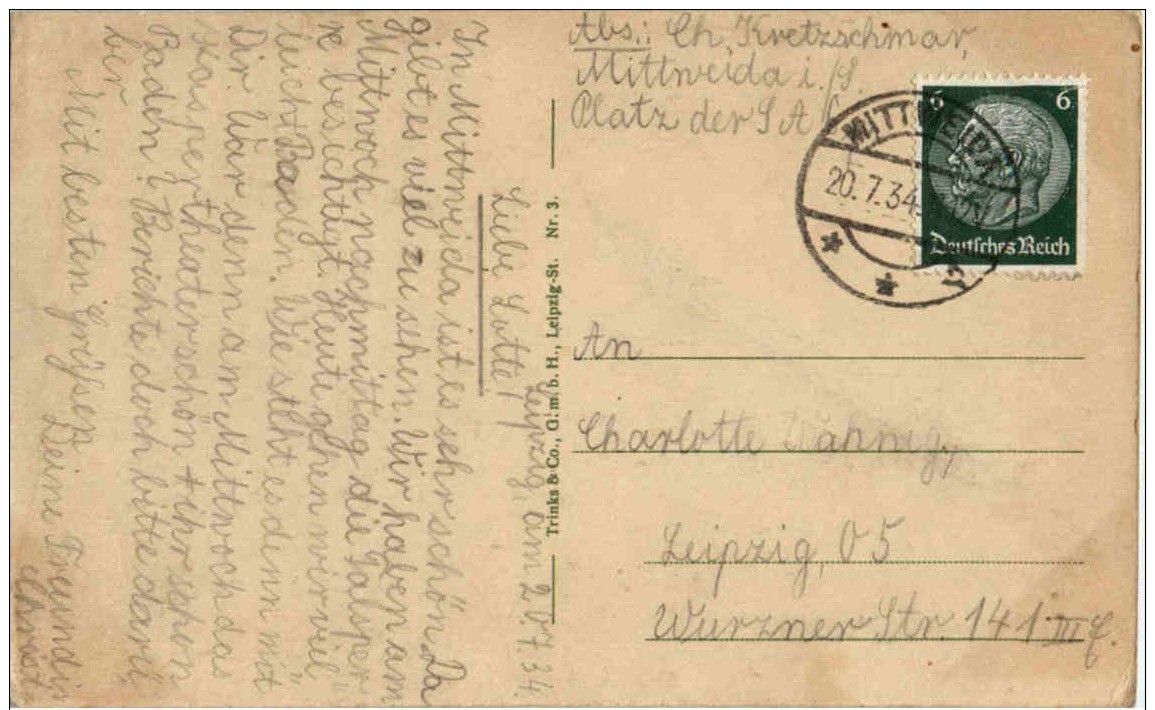 Leipzig, am 20.7.34.
Liebe Lotte!
In Mittweida ist es sehr schön. Da
gibt es viel zu sehen. Wir haben am
Mittwoch nachmittag die Talsper
re besichtigt. Heute gehen wir viel
leicht Baden. Wie steht es denn mit
Dir. War denn am Mittwoch das
Kasperltheater schön + ihr schon
Baden? Berichte doch bitte darü
ber
Mit besten Grüßen
Deine Freundin
Christ
Trinks & Co., G. m. b. H., Leipzig-St. Nr. 3.
Abs.: Ch. Kretzschmar,
Mittweida i./S.
Platz der S A
6 6
Deutsches Reich
MITTWEIDA
20.7.34
An
Charlotte
Leipzig O 5
Wurzner Str. 141 III